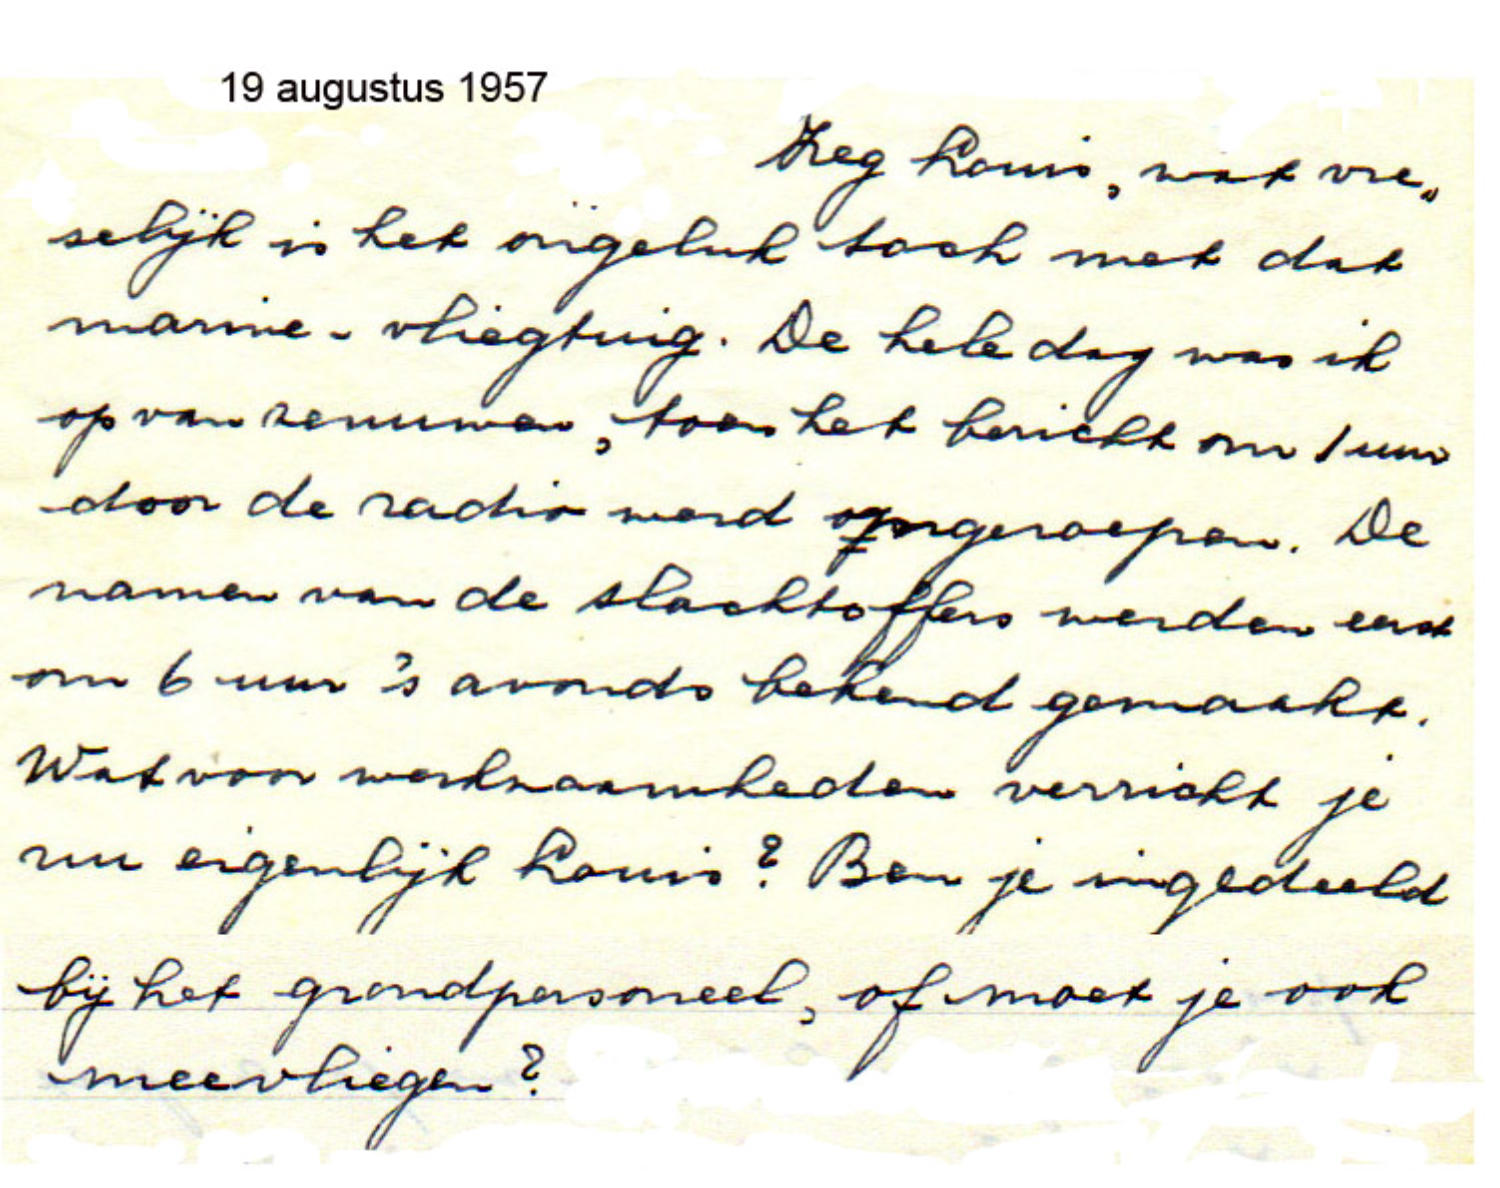 19 augustus 1957
Zeg Louis, wat vre„
selijk is het ongeluk toch met dat
marine - vliegtuig. De hele dag was ik
op van zenuwen, toen het bericht om 1 uur
door de radio werd omgeroepen. De
namen van de slachtoffers werden eerst
om 6 uur 's avonds bekend gemaakt.
Wat voor werkzaamheden verricht je
nu eigenlijk Louis? Ben je ingedeeld
bij het grondpersoneel, of moet je ook
meevliegen?